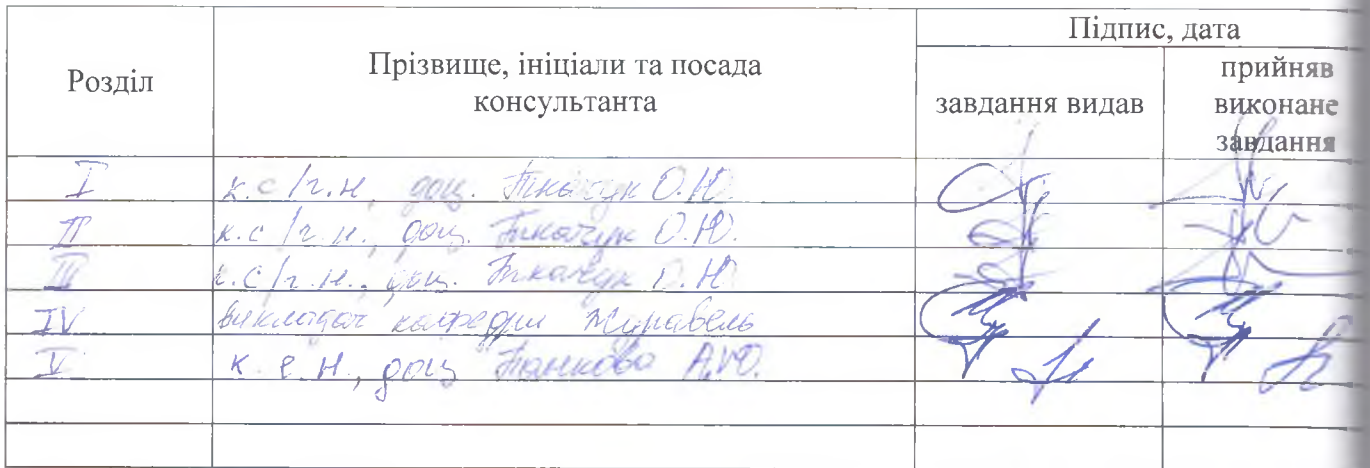 Розділ
Прізвище, ініціали та посада
консультанта
Підпис, дата
завдання видав
прийняв
виконане
завдання
I к.с/г.н., доц. Ткачук О.Ю.
II к.с/г.н., доц. Ткачук О.Ю.
III к.с/г.н., доц. Ткачук О.Ю.
IV викладач кафедри Журавель
V к.е.н., доц Панкова А.Ю.